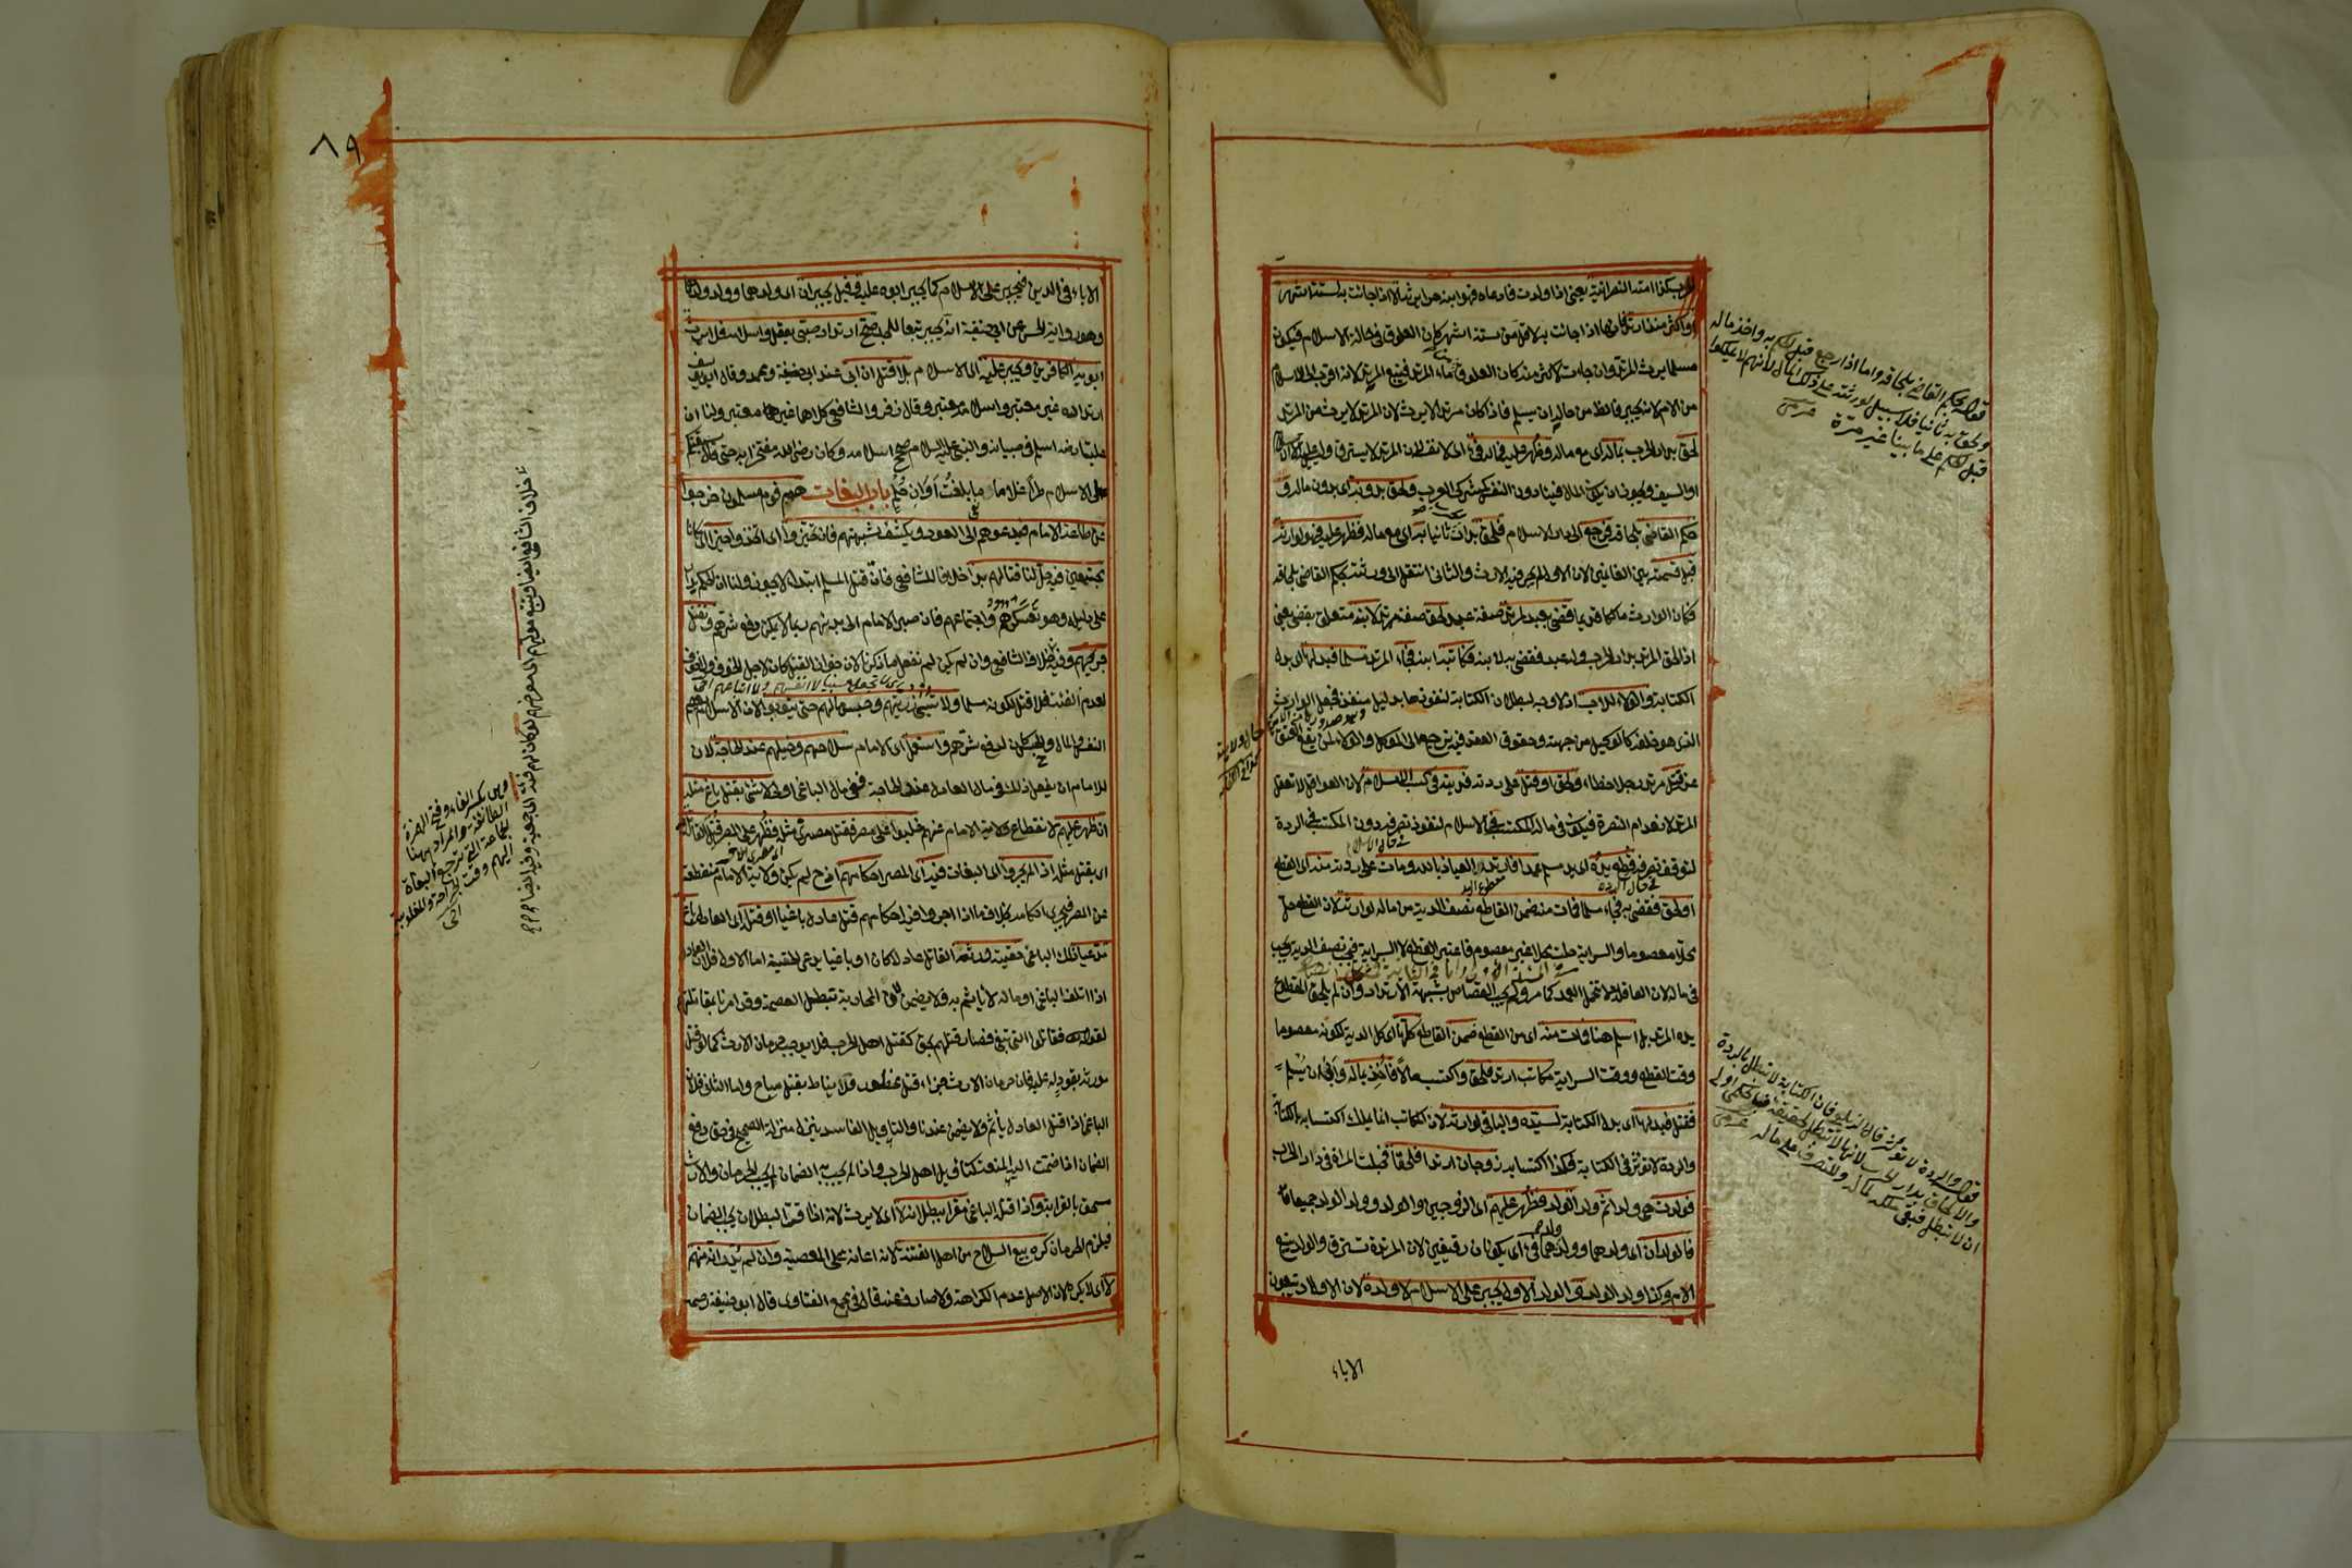 كذا امته النصرانية يعني اذا ولدت فادعاه فهو ابنه حر ابن يرثه لا اذا جائت به لستة اشهر
او اكثر منذ ارتد لانها اذا جائت به لاقل من ستة اشهر كان العلوق في حالة الاسلام فيكون
مسلما يرث المرتد وان جاءت لاكثر منه كان العلوق من ماء المرتد فيتبع المرتد لانه اقرب الى الاسلام
من الام لانه يجبر فالظ من حاله ان يسلم فاذا كان مرتدا لا يرث لان المرتد لا يرث من المرتد
لحق بدار الحرب بماله اى مع ماله وظهر عليه فماله فئ اى لا نفسه لان المرتد لا يسترق وليس عليه الا الاسلام
او السيف ويجوز ان يكون المال فيئا دون النفس كمشركى العرب ولحق بدونه اى بدون ماله و
حكم القاضى بلحاقه فرجع الى دار الاسلام فلحق بدار ثانيا به اى مع ماله فظهر عليه فهو لوارثه
قبل قسمته بين الغانمين لان الاول لم يجر فيه الارث والثانى انتقل الى ورثته بحكم القاضى بلحاقه
فكان الوارث مالكا قديما قضى بعبد لمرتد صفة عبد لحق صفة مرتد لابنه متعلق بقضى يعنى
اذا لحق المرتد بدار الحرب وله عبد فقضى به لابنه فكاتبه ابنه فجاء المرتد مسلما فبدلها اى بدل
الكتابة والولاء للاب اذ لا وجه لبطلان الكتابة لنفوذها بدليل منفذ فجعل الوارث
الذى هو خلفه كالوكيل من جهته وحقوق العقد فيه يرجع الى الموكل والولاء لمن يقع العتق
عنه قتل مرتد رجلا خطاء ولحق او قتل على ردته فديته فى كسب الاسلام لان العواقل لا تعقل
المرتد لانعدام النصرة فيكون فى ماله المكتسب فى الاسلام لنفوذ تصرفه دون المكتسب فى الردة
فى حال الاسلام
لتوقف تصرفه قطع يده اى يد مسلم عمدا فارتد العياذ بالله ومات على ردته منه اى القطع
فى حال الردة مقطوع اليد
او لحق فقضى به فجاء مسلما فمات منه ضمن القاطع نصف الدية من ماله لوارثه لان القطع حل
محلا معصوما والسراية حلت محلا غير معصوم فاعتبر القطع لا السراية فيجب نصف الدية يجب
فى ماله لان العاقلة لا تتحمل العمد كما مر ولم يجب القصاص بشبهة الارتداد وان لم يلحق المقطوع
يده المرتد بل اسلم هنا ومات منه اى من القطع ضمن القاطع كلها اى كل الدية لكونه معصوما
وقت القطع ووقت السراية مكاتب ارتد فلحق واكتسب مالا فاخذ بماله وابى ان يسلم
فقتل فبدلها اى بدل الكتابة لسيده والباقى لوارثه لان المكاتب انما يملك اكتسابه بالكتابة
والردة لا تؤثر فى الكتابة فكذا اكتسابه زوجان ارتدا فلحقا فحبلت المراة فى دار الحرب
فولدت هى ولدا ثم ولد الولد فظهر عليهم اى الزوجين والولد وولد الولد جميعا
فالولدان اى ولدهما وولد ولدهما فئ اى يكونان رقيقين لان المرتدة تسترق والولد يتبع
الام وكذا ولد الولد والولد الاول يجبر على الاسلام لا ولده لان الاولاد يتبعون
الاباء
قوله بحكم القاضى بلحاقه واما اذا رجع قبل الحكم به واخذ ماله
ولحق به ثانيا فلا سبيل لورثته على ذلك المال لانهم لا يملكوا
قبل الحكم على ما بينا غير مرة
قوله والردة لا تؤثر قال الزيلعى فان الكتابة لا تبطل بالردة
والالحاق بدار الحرب لانها لا تبطل لحقيقة فبالحكمى اولى
ان لا تبطل فبقى ملكه كماله ولا تصرف على ماله
٨٩
الاباء فى الدين فيجبرون على الاسلام كما يجبر ابوه عليه وقيل يجبران اى ولدهما وولد ولدهما
وهو رواية الحسن عن ابى حنيفة انه يجبر تبعا للجد صح ارتداد صبى يعقل واسلامه فلا يرث
ابويه الكافرين ويجبر عليه اى الاسلام بلا قتل ان ابى عند ابى حنيفة ومحمد وقال ابو يوسف
ارتداده غير معتبر واسلامه معتبر وقال زفر والشافعى كلاهما غير معتبر ولنا ان
عليا رضه اسلم فى صباه والنبى عليه السلام صحح اسلامه وكان رضى الله مفتخرا به حتى قال سبقتكم
على الاسلام طرا غلاما ما بلغت اوان حلم باب البغاة هم قوم مسلمون خرجوا
عن طاعة الامام فيدعوهم الى العود ويكشف شبهتهم فان تحيزوا اى اتخذوا حيزا اى مكانا
مجتمعين فيه حل لنا قتالهم بدأ خلافا للشافعى فان قتل المسلم ابتداء لا يجوز ولنا ان الحكم يدار
على دليله وهو تعسكرهم واجتماعهم فان صبر الامام الى بدئهم ربما لا يمكن دفع شرهم ونقتل
جريحهم وفيه خلاف الشافعى وان لم يكن لهم فئة لم نفعل ما ذكرنا لان جواز القتل كان لاجل الخوف ولا خوف
لعدم الفئة فلا قتل لكونه مسلما ولا نسبى ذريتهم وحبس مالهم حتى يتوبوا لان الاسلام يعصم
النفس والمال والحبس كان لدفع شرهم واستعمل اى الامام سلاحهم وخيلهم عند الحاجة لان
للامام ان يفعل ذلك فى مال العادل عند الحاجة ففى مال الباغى اولى لا شئ بقتل باغ مثله
ان ظهر عليهم لانقطاع ولاية الامام عنهم غلبوا على مصر فقتل مصرى مثله فظهر على المصر قتل القاتل به
اى بقتل مثله اذا لم يجروا اى البغاة فيه اى المصر احكامهم اذ ح لم يكن ولاية الامام منقطعة
عن المصر فيجرى احكامه بخلاف ما اذا اجروا فيه احكامهم قتل عادل باغيا او قتله اى العادل باغ
مدعيا ذلك الباغى حقيته ورثه القاتل عادلا كان او باغيا يدعى الحقية اما الاول فلان العادل
اذا اتلف الباغى او ماله لا ياثم به ولا يضمن لان المحاربة تبطل العصمة وقد امرنا بمقاتلتهم
لقوله تعالى فقاتلوا التى تبغى فصار قتلهم بحق كقتل اهل الحرب فلا يوجب حرمان الارث كما لو قتل
مورثه بقود له عليه فان حرمان الارث جزاء قتل محظور فلا يناط بقتل مباح واما الثانى فلان
الباغى اذا قتل العادل ياثم ولا يضمن عندنا والتاويل الفاسد ينزل منزلة الصحيح فى حق دفع
الضمان اذا ضمت اليه المنعة كتاويل اهل الحرب واذا لم يجب به الضمان لم يجب الحرمان والارث
مستحق بالقرابة وكذا قتل الباغى مقرا ببطلانه لا اى لا يرث لانه اذا اقر بالبطلان يجب الضمان
فيلزم الحرمان كره بيع السلاح من اهل الفتنة لانه اعانة على المعصية وان لم يدر انه منهم
لا اى لا يكره لان الاصل عدم الكراهة ولا صارف عنه قال فى مجمع الفتاوى قال ابو حنيفة رحمه
وهى بكسر الفاء وفتح الهمزة
الطائفة والمراد ههنا
الجماعة التى يرجع البغاة
اليهم وقت الجراحة والمغلوبية